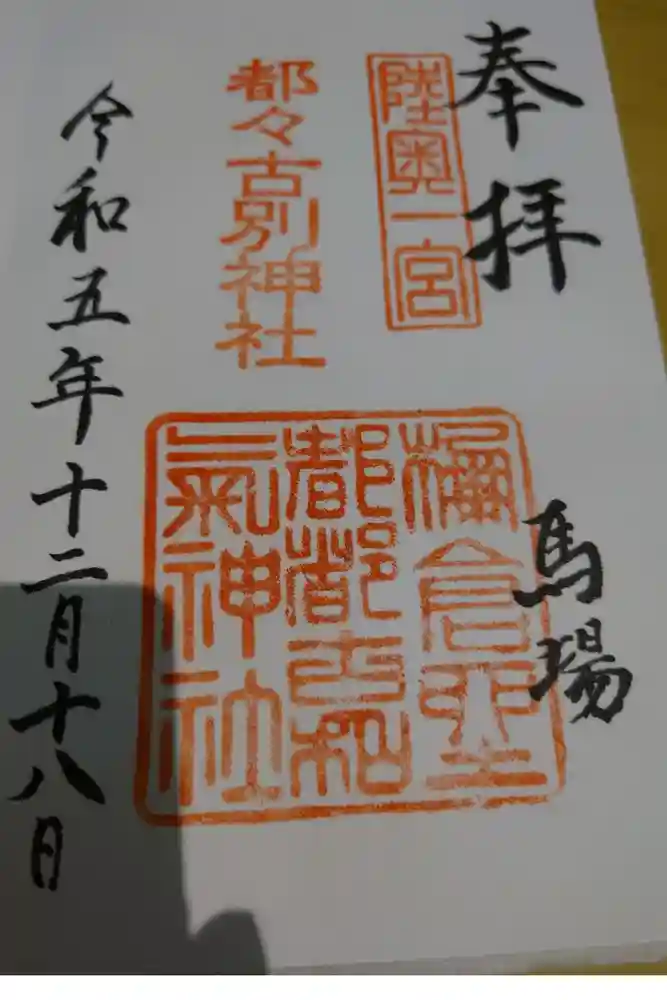 奉拝
馬場
陸奥一宮
都々古別神社
都都古和
氣神社
令和五年十二月十八日